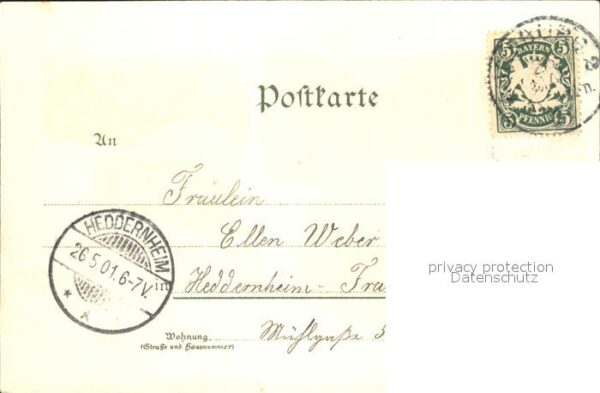 5 BAYERN 5
5 PFENNIG 5
Postkarte
An
Fräulein
Ellen Weber
HEDDERNHEIM
26.5.01.6-7V.
in Heddernheim - Fra
privacy protection
Datenschutz
Wohnung
(Straße und Hausnummer)
Mühlgaße 5